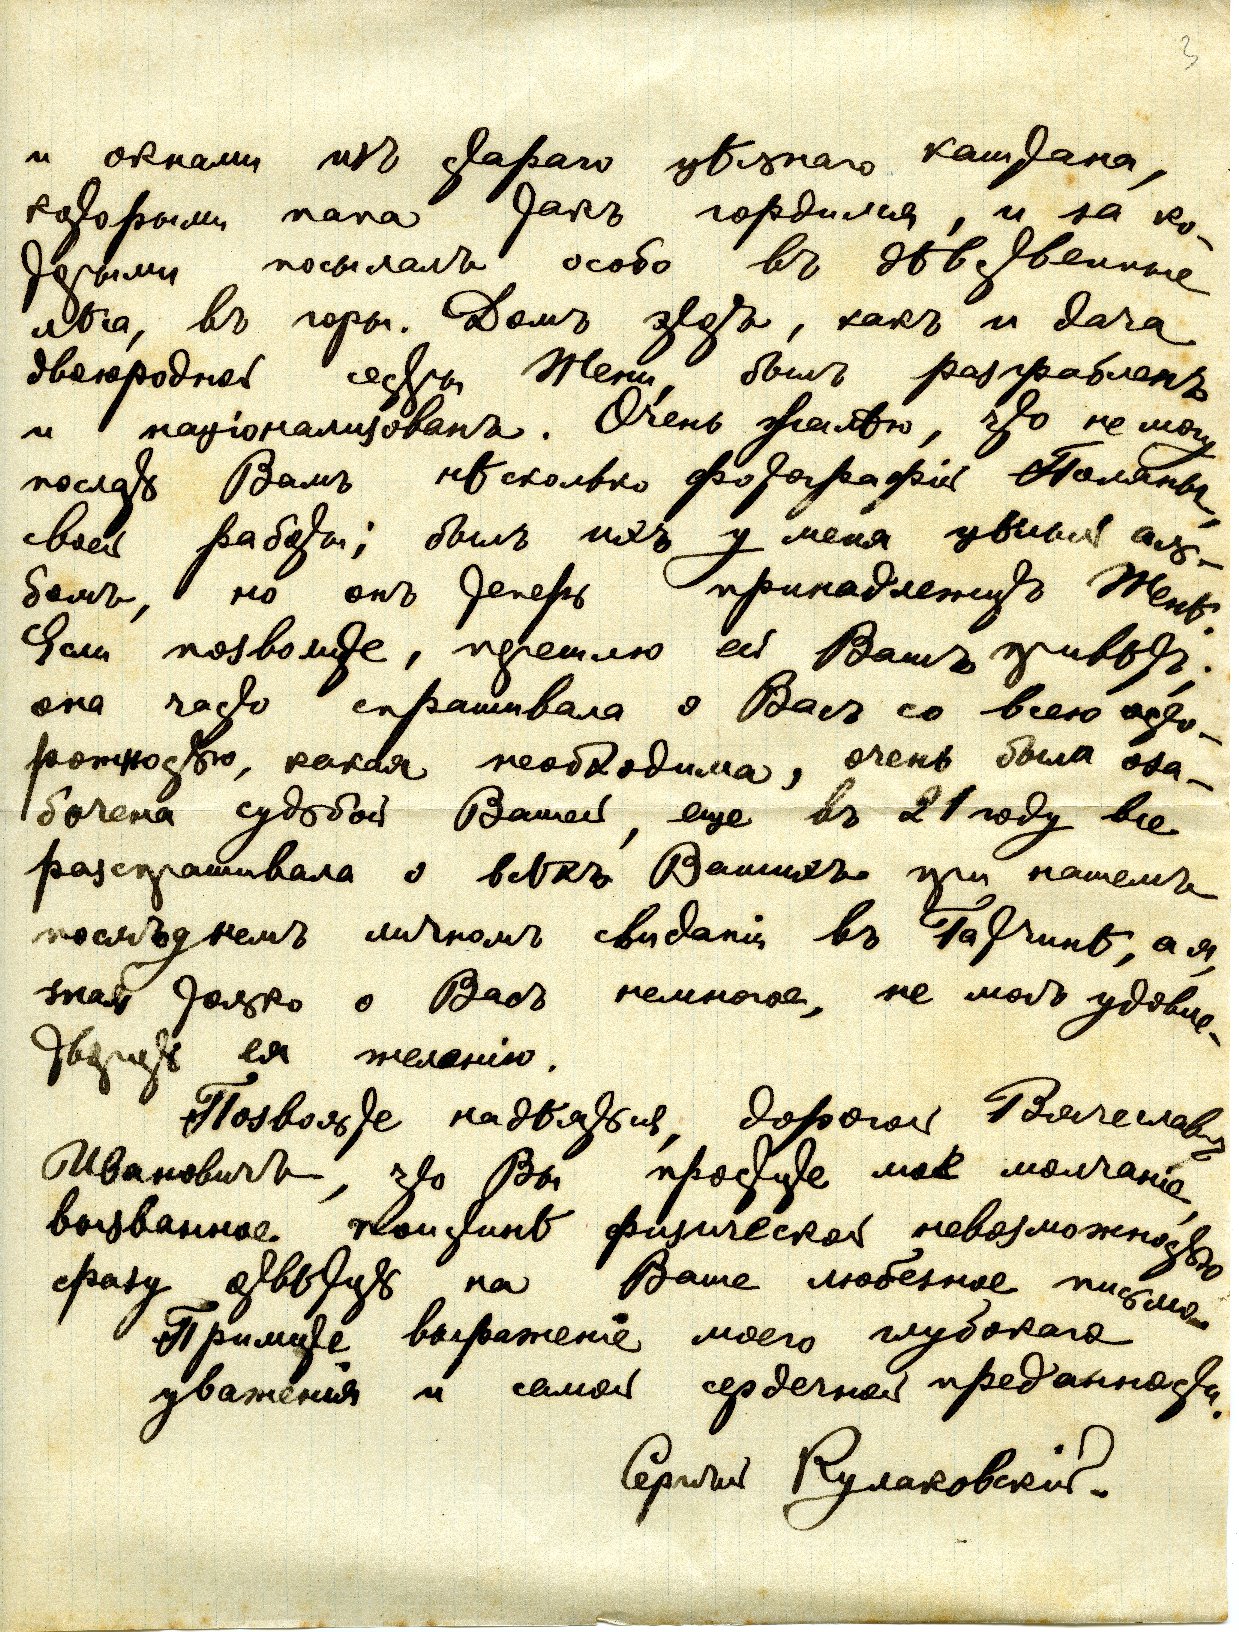 3
и окнами изъ стараго цѣльнаго каштана,
которыми папа такъ гордился, и за ко-
торыми посылалъ особо въ дѣвственные
лѣса, въ горы. Домъ этотъ, какъ и дача
двоюродной сестры Жени, былъ разграбленъ
и націонализованъ. Очень жалѣю, что не могу
послать Вамъ нѣсколько фотографій Поляны,
своей работы; былъ ихъ у меня цѣлый аль-
бомъ, но онъ теперь принадлежитъ Женѣ.
Если позволите, перешлю ей Вашъ привѣтъ;
она часто спрашивала о Васъ со всею осто-
рожностью, какая необходима, очень была оза-
бочена судьбой Вашей, еще въ 21 году все
разспрашивала о всѣхъ Вашихъ при нашемъ
послѣднемъ личномъ свиданіи въ Гатчинѣ, а я,
зная только о Васъ немногое, не могъ удовле-
творить ея желанію.
Позвольте надѣяться, дорогой Вячеславъ
Ивановичъ, что Вы простите мое молчаніе,
вызванное поистинѣ физической невозможностью
сразу отвѣтить на Ваше любезное письмо.
Примите выраженіе моего глубокаго
уваженія и самой сердечной преданности.
Сергѣй Кулаковскій.